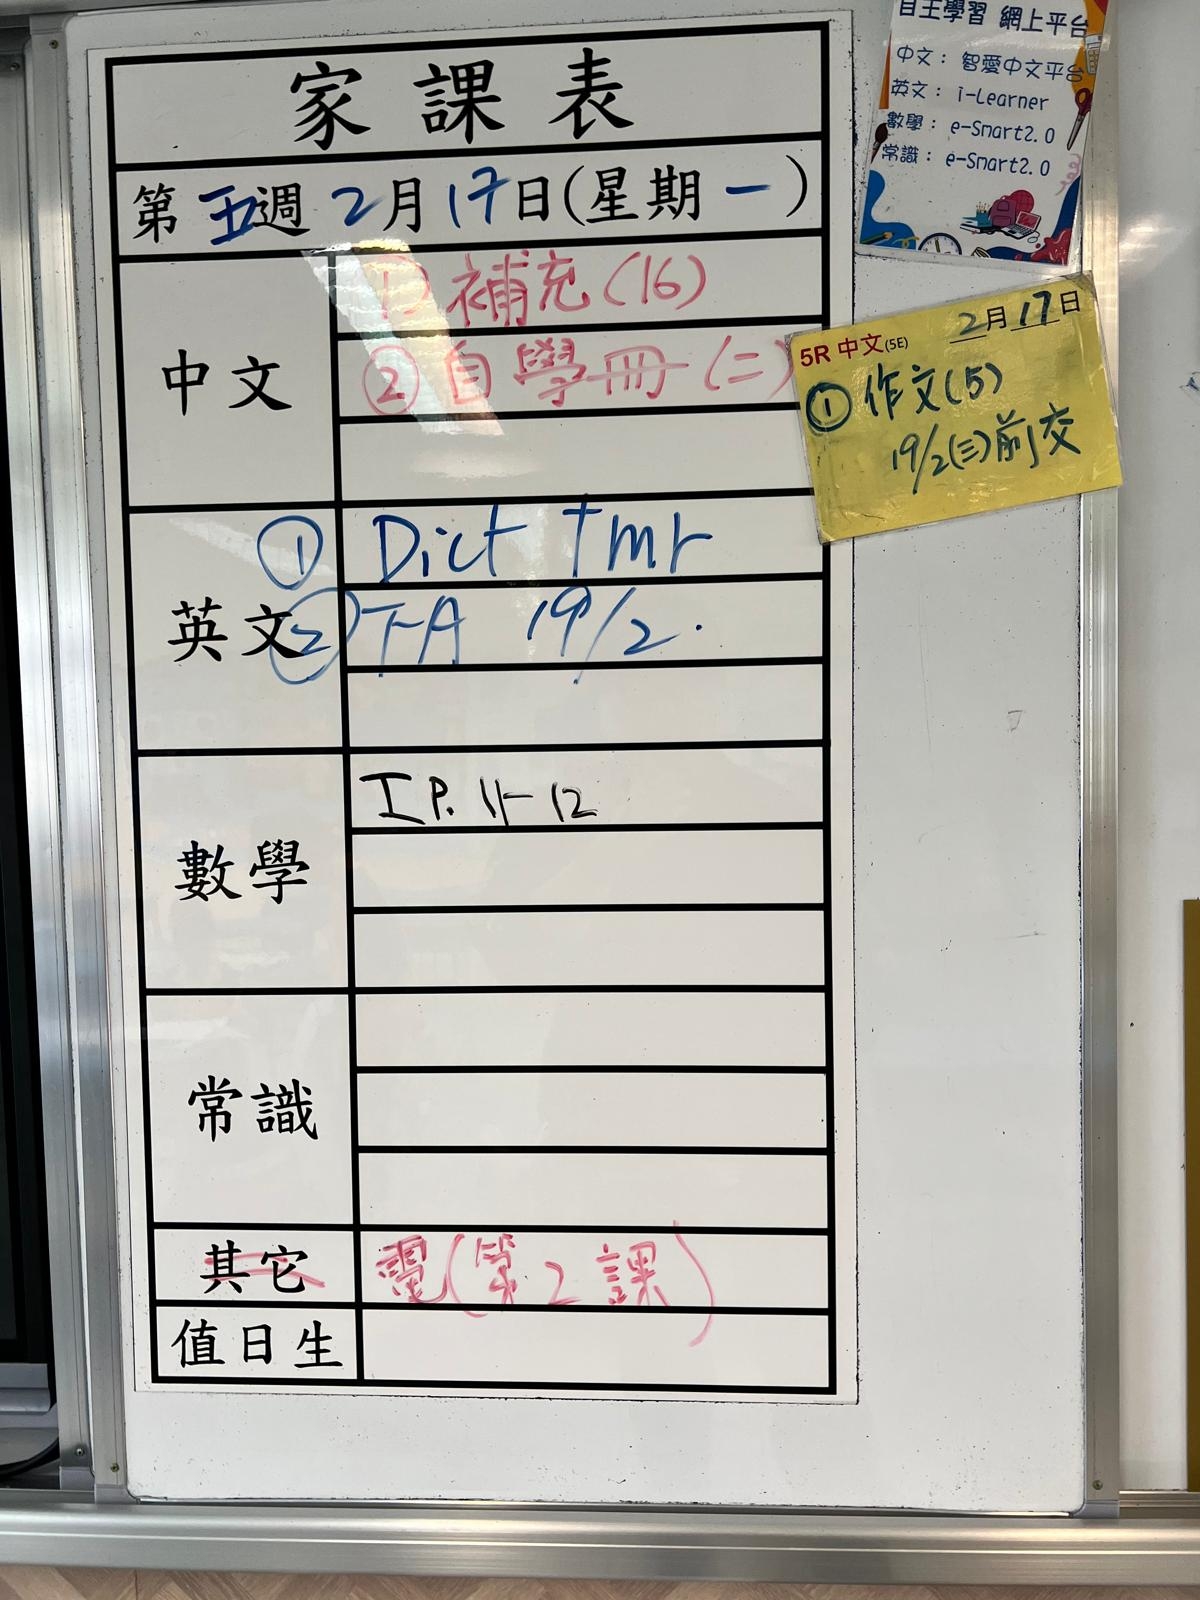 家課表
第五週 2月17日(星期一)
中文
① 補充(16)
② 自學冊(二)
英文
① Dict tmr
② TA 19/2.
數學
I P. 11-12
常識
其它
電(第2課)
值日生
自主學習 網上平台
中文： 智愛中文平台
英文： i-Learner
數學： e-Smart2.0
常識： e-Smart2.0
2月17日
5R 中文(5E)
① 作文(5)
19/2(三)前交